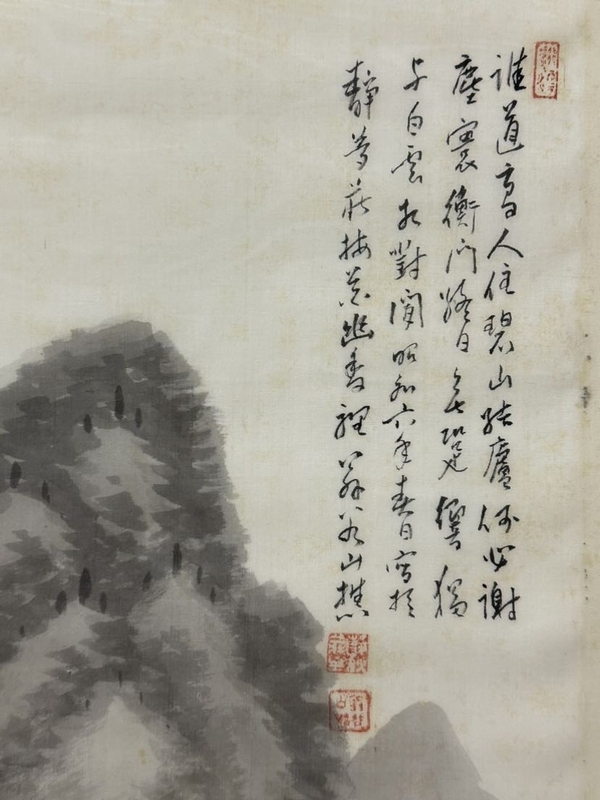 誰道高人住碧山結廬何必謝
塵寰衡門終日無跫響獨
与白雲相對閒昭和六年春日寫於
靜 莊梅花幽香裡 山樵